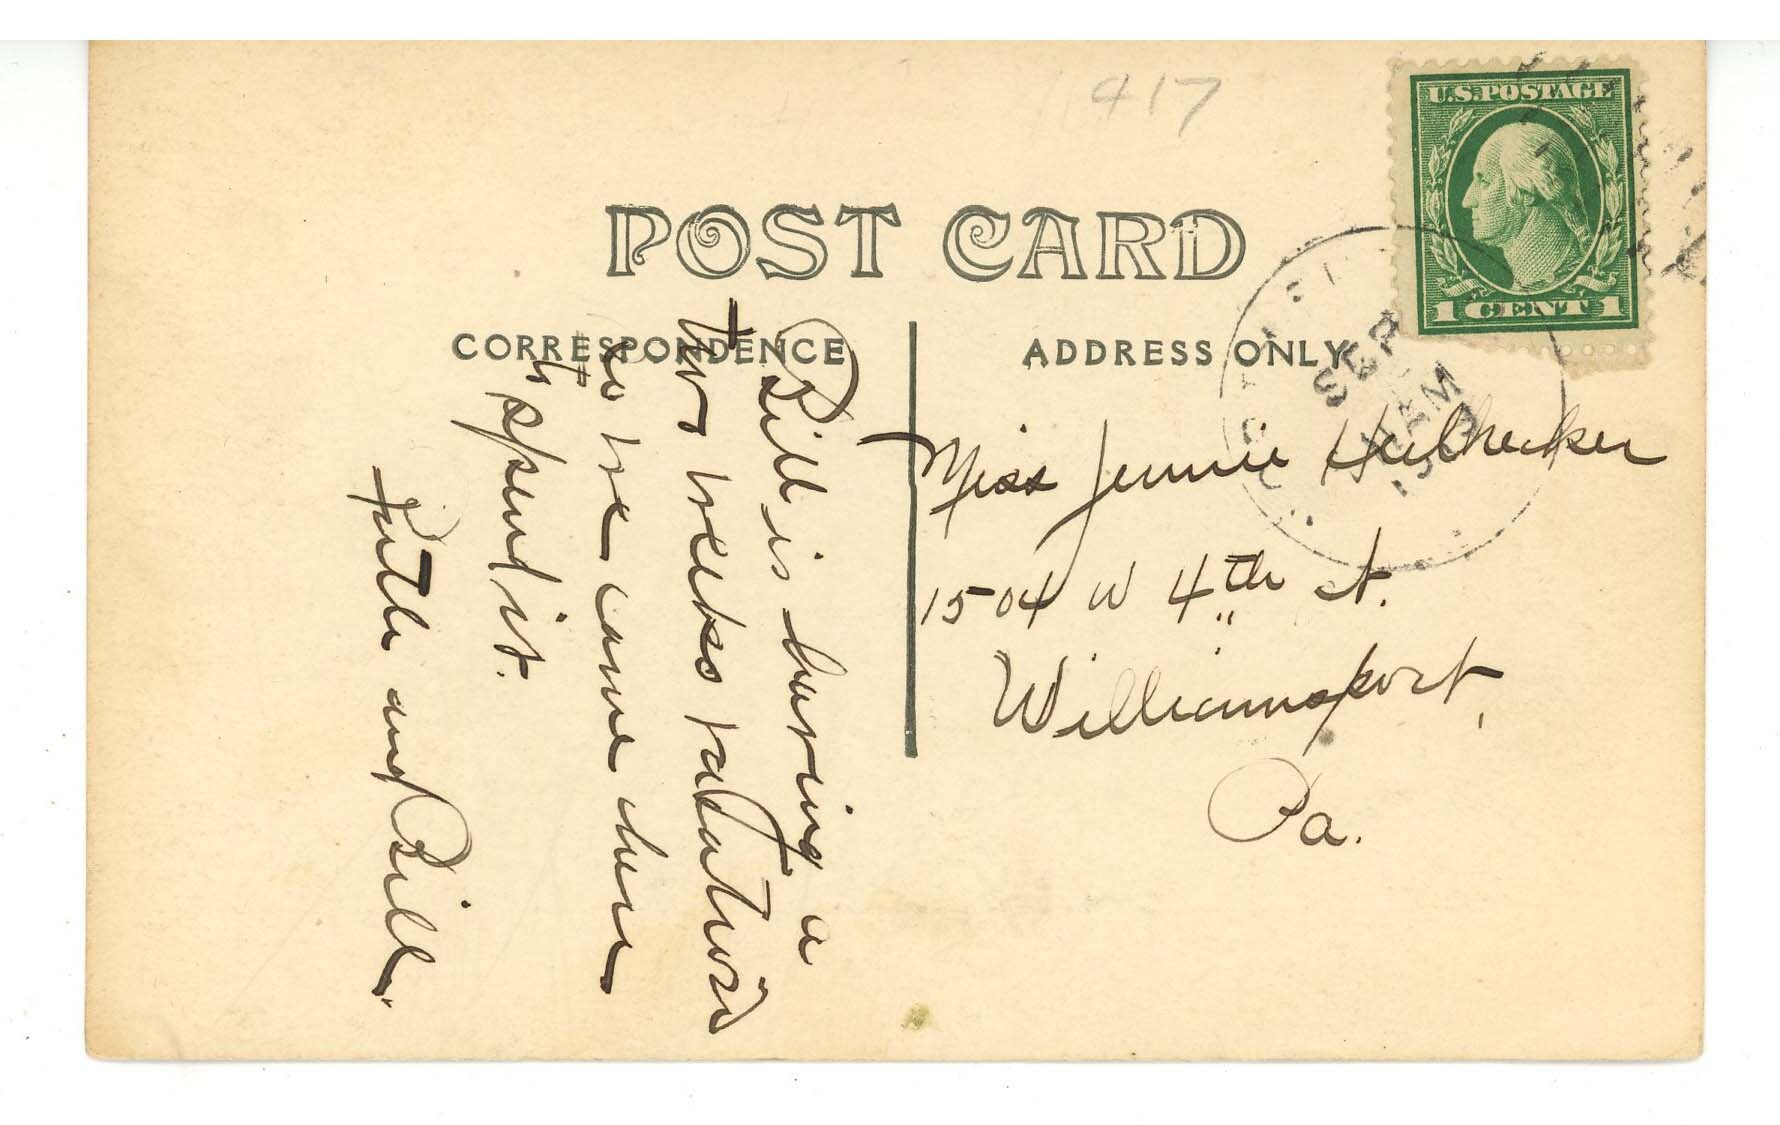 417
U.S.POSTAGE
1 CENT 1
POST CARD
CORRESPONDENCE
ADDRESS ONLY
SEP
AM
Bill is having a
two weeks vacation
so we came here
to spend it.
and Bill.
Miss Jennie
1504 W 4th st.
Williamsport,
Pa.